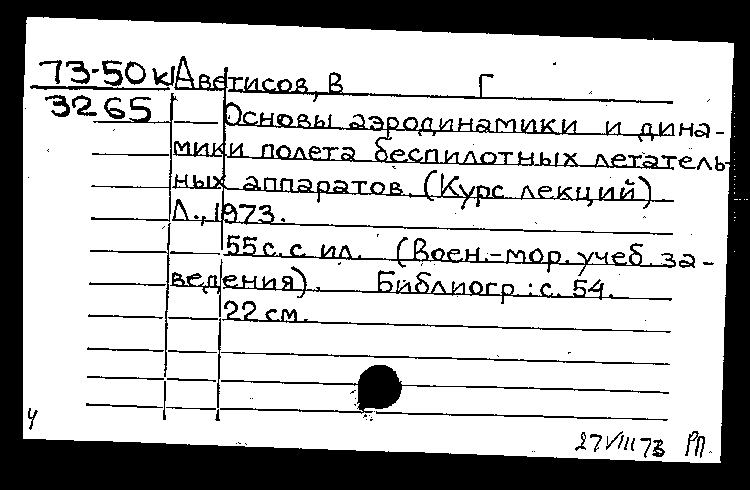 73-50к Аветисов, В Г
3265
Основы аэродинамики и дина-
мики полета беспилотных летатель-
ных аппаратов. (Курс лекций)
Л., 1973.
55 с. с ил. (Воен.-мор. учеб. за-
ведения). Библиогр: с. 54.
22 см.
ч
27 VIII 73 РП